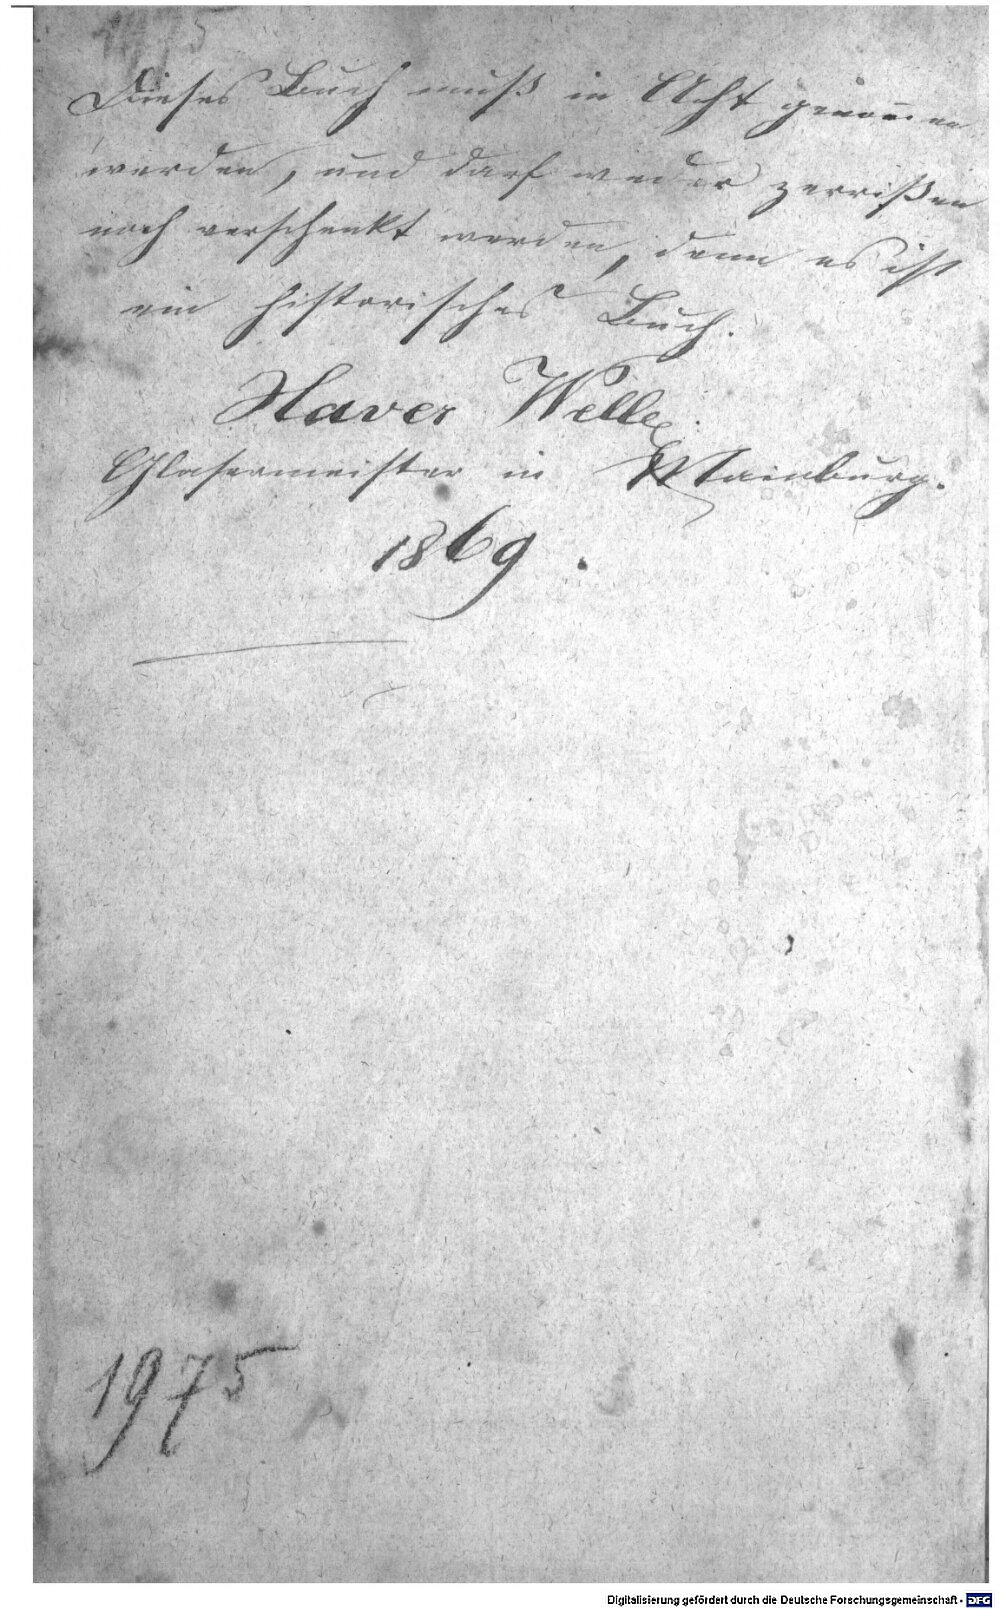 1975
Dieses Buch muß in Acht genom̅en
werden, und darf weder zerrißen
noch verschenkt werden, denn es ist
ein historisches Buch.
Xaver Weller.
Glasermeister in Mainburg.
1869.
1975
Digitalisierung gefördert durch die Deutsche Forschungsgemeinschaft - DFG